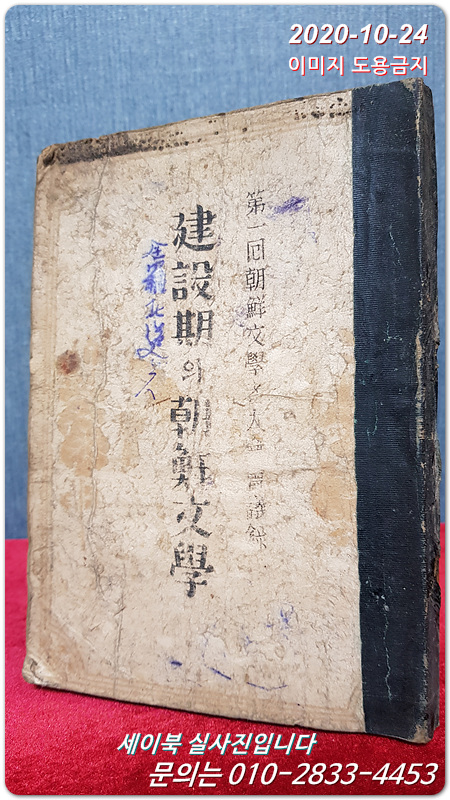 2020-10-24
이미지 도용금지
第一回朝鮮文學者大會 會議錄
建設期의 朝鮮文學
세이북 실사진입니다
문의는 010-2833-4453